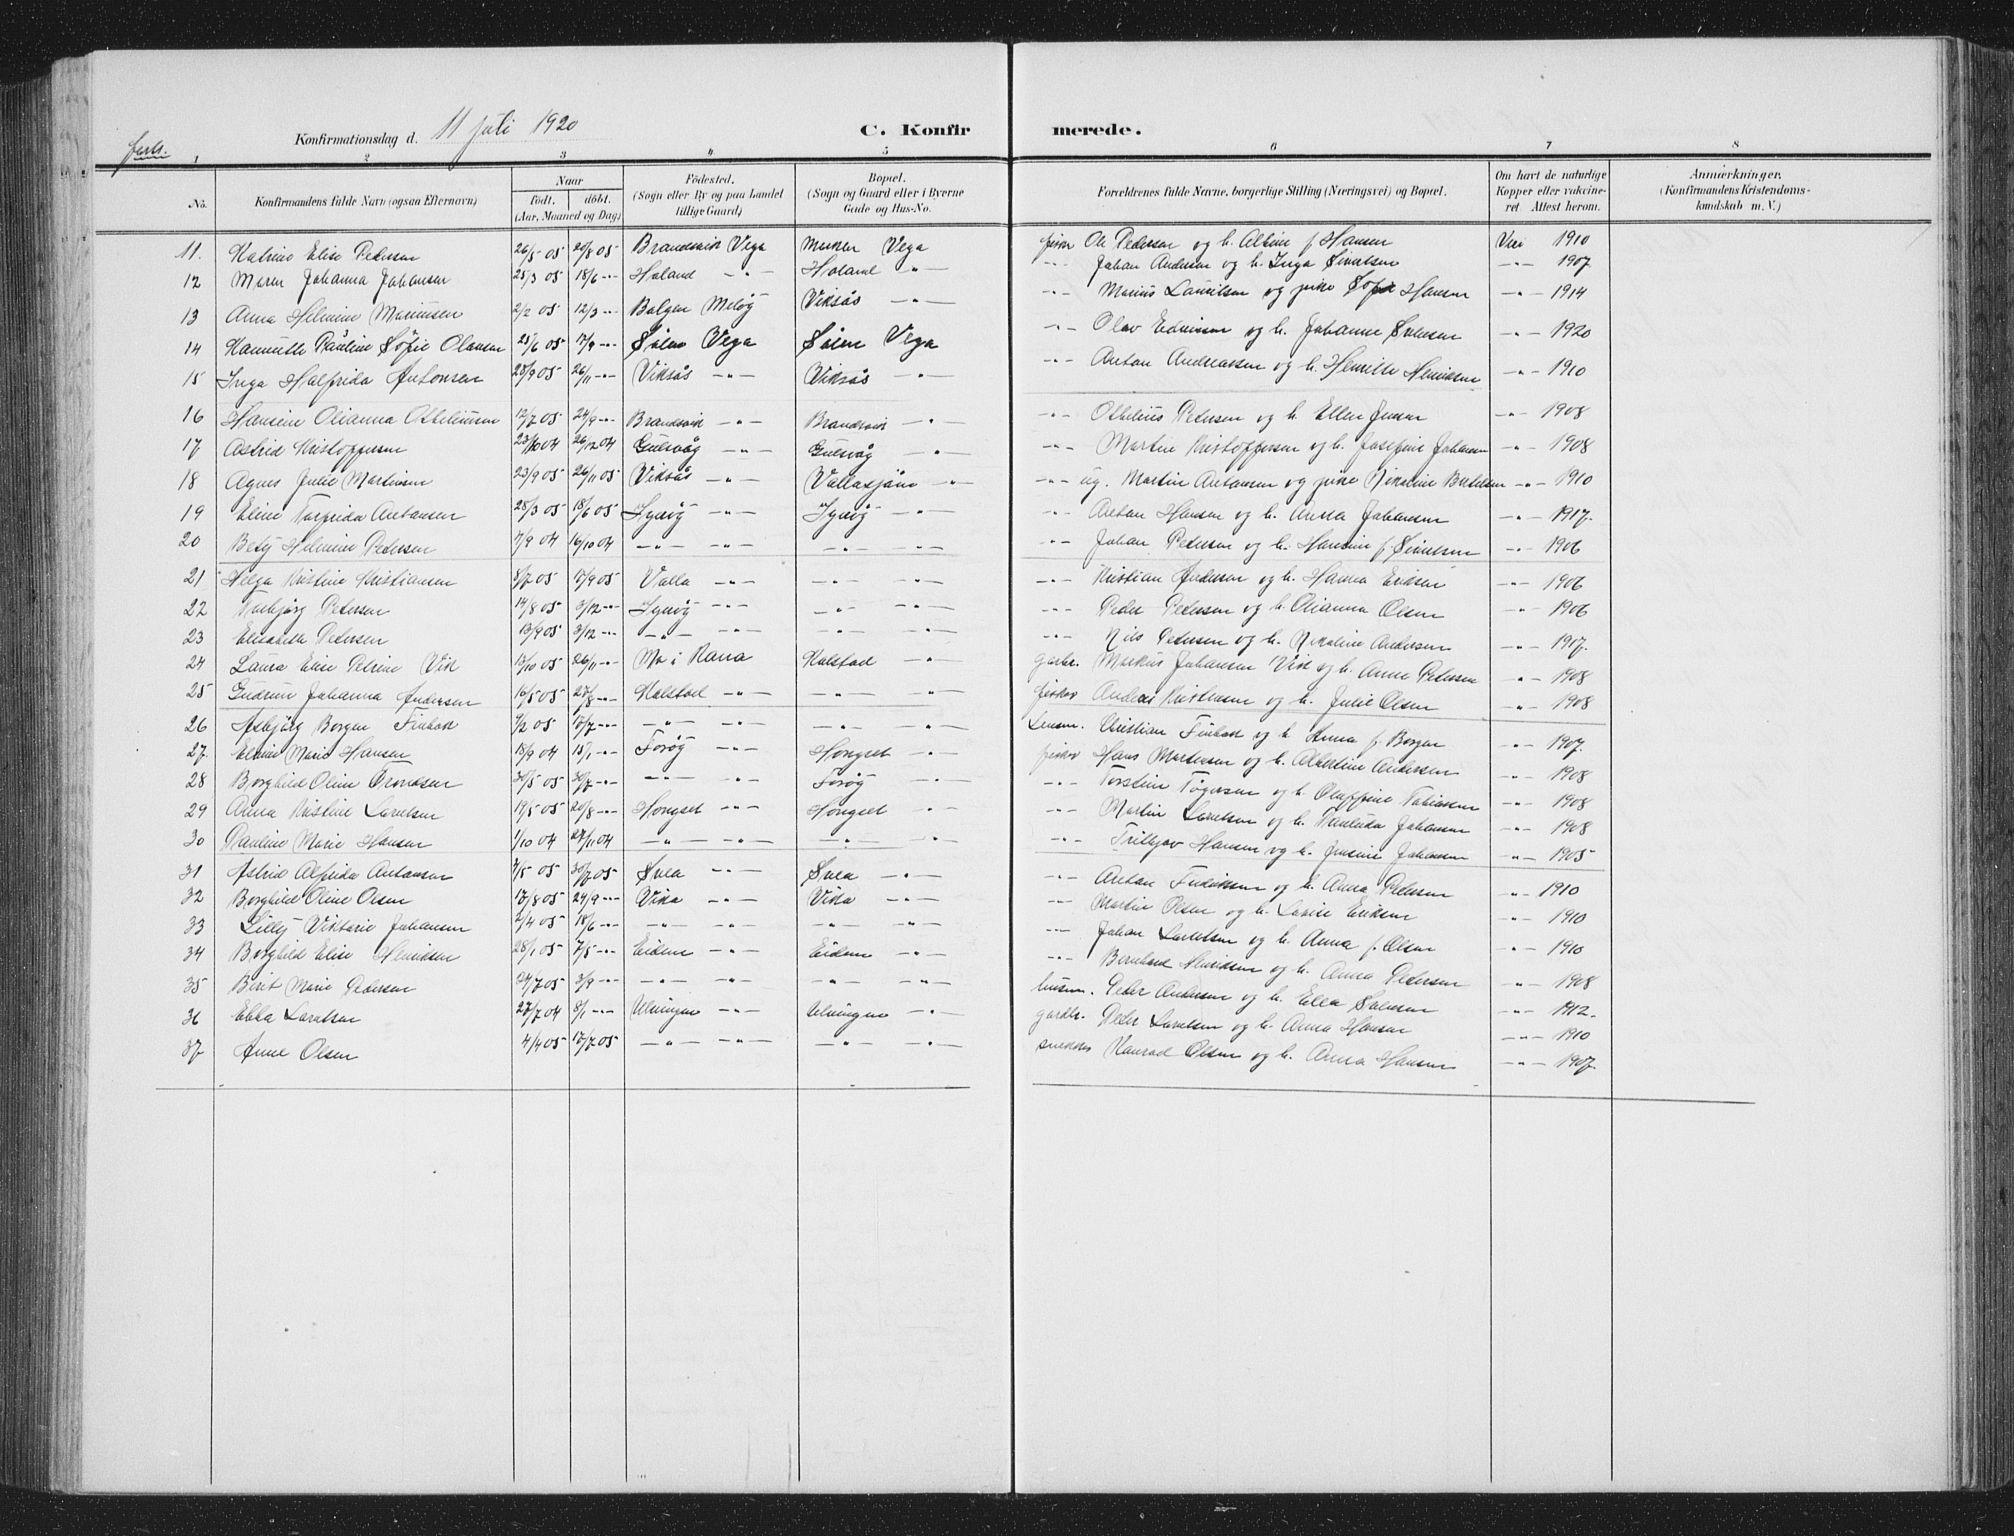 Konfirmationsdag d. 11 juli 1920
C. Konfirmerede.
forts.
1 2 3 4 5 6 7 8
No. Konfirmandens fulde Navn (ogsaa Efternavn) Naar födt. döbt. (Aar, Maaned og Dag) Födested. (Sogn eller By og paa Landet tillige Gaard) Bopæl. (Sogn og Gaard eller i Byerne Gade og Hus-No. Forældrenes fulde Navne, borgerlige Stilling (Næringsvei) og Bopæl. Om havt de naturlige Kopper eller vakvineret. Attest herom. Anmærkninger. (Konfirmandens Kristendomskundskab m. V.)
11. Katrine Elise Pedersen 26/5 05 20/8 05 Brandsvik Vega Vega fisker Ole Pedersen og h. Albine f. Hansen Vac 1910
12 Maren Johanna Johansen 25/3 05 18/6 -"- Holand -"- Holand -"- -"- Johan Andersen og h. Inga Sivertsen -"- 1907
13 Anna Helmine Mariusen 2/2 05 12/3 -"- Bolgen Meløy Viksås -"- -"- Marius Lauritsen og pike Sofie Hansen -"- 1914
14 Pauline Sofie Olausen 25/6 05 17/9 -"- Solem Vega Solem Vega -"- Olav Edvinsen og h. Johanne -"- 1920
15 Inga Halfrida Antonsen 23/9 05 26/11 -"- Viksås -"- Viksås -"- -"- Anton Andreassen og h. Henriette Henriksen -"- 1910
16 Hansine Olianna Ottelinsen 12/7 05 24/9 -"- Brandsvik -"- Brandsvik -"- -"- Pedersen og h. Ellen Jensen -"- 1908
17 Astrid Kristoffersen 23/10 04 26/12 04 Gulsvåg -"- Gulsvåg -"- -"- Martin Kristoffersen og h. Josefine Johansen -"- 1908
18 Agnes Julie Martinsen 23/9 05 26/11 05 Viksås -"- Vallasjøen -"- -"- ug. Martin Antonsen og pike Nikoline Bertelsen -"- 1910
19 Eline Torfrida Antonsen 28/3 05 18/6 05 Igerøy -"- Igerøy -"- -"- Anton Hansen og h. Anna Johansen -"- 1917.
20 Bety Helmine Pedersen 7/9 04 16/10 04 -"- -"- -"- -"- -"- Johan Pedersen og h. Hansine f. Sivertsen -"- 1906
21 Helga Kristine Kristiansen 8/7 05 17/9 05 Valla -"- -"- -"- -"- Kristian Andersen og h. Hanna Eriksen -"- 1906
22 Torbjørg Pedersen 14/8 05 3/12 -"- Igerøy -"- -"- -"- -"- Peder Pedersen og h. Olianna Olsen -"- 1906
23 Elisabeth Pedersen 13/9 05 3/12 -"- -"- -"- -"- -"- -"- Nils Pedersen og h. Nikoline Andersen -"- 1917.
24 Laura Elise Petrine Vik 13/10 05 26/11 -"- Mo i Rana Kalstad -"- garbr. Markus Johansen Vik og h. Anne Petersen -"- 1908
25 Gudrun Johanna Andersen 16/5 05 27/8 -"- Kalstad -"- -"- -"- fisker Anders Kristensen og h. Julie Olsen -"- 1908
26 Asbjørg Borgen Finbak 9/2 05 16/7 -"- -"- -"- -"- -"- Lensm. Kristian Finbak og h. Anna f. Borgen -"- 1907.
27. Elvine Marie Hansen 18/9 04 15/1 -"- Forøy -"- Hongset -"- fisker Hans Mortensen og h. Albertine Andersen -"- 1908
28 Borghild Oline 30/5 05 30/7 -"- -"- -"- Forøy -"- -"- Torstein og h. Oluffine Tobiassen -"- 1908
29 Anna Kristine Lorntsen 19/5 05 20/8 -"- Hongset -"- Hongset -"- -"- Martin Lorntsen og h. Johansen -"- 1908
30 Pauline Marie Hansen 1/10 04 27/11 04 -"- -"- -"- -"- -"- Hansen og h. Jensine Johansen -"- 1905
31 Astrid Alfrida Antonsen 2/5 05 30/7 05 Svea -"- Svea -"- -"- Anton Fredriksen og h. Anna Pedersen -"- 1910
32 Borghild Oline Olsen 17/8 05 24/9 -"- Vika -"- Vika -"- -"- Martin Olsen og h. Lovise Eriksen -"- 1910
33 Lilly Viktorie Johansen 2/4 05 18/6 -"- -"- -"- -"- -"- -"- Johan Lorntsen og h. Anna f. Olsen -"- 1910
34 Borghild Elise Henriksen 28/1 05 7/5 -"- Eidem -"- Eidem -"- -"- Bernhard Henriksen og h. Anna Pedersen -"- 1908
35 Berit Marie Pedersen 24/7 05 3/9 -"- -"- -"- -"- -"- husm. Peder Andersen og h. Ella -"- 1912.
36 Ebba Lorntsen 27/7 04 8/1 -"- Ulvingen -"- Ulvingen -"- gardbr. Peter Lorntsen og h. Anna Hansen -"- 1910
37 Anne Olsen 4/4 05 17/7 05 -"- -"- -"- -"- snedker Konrad Olsen og h. Anna Hansen -"- 1907.